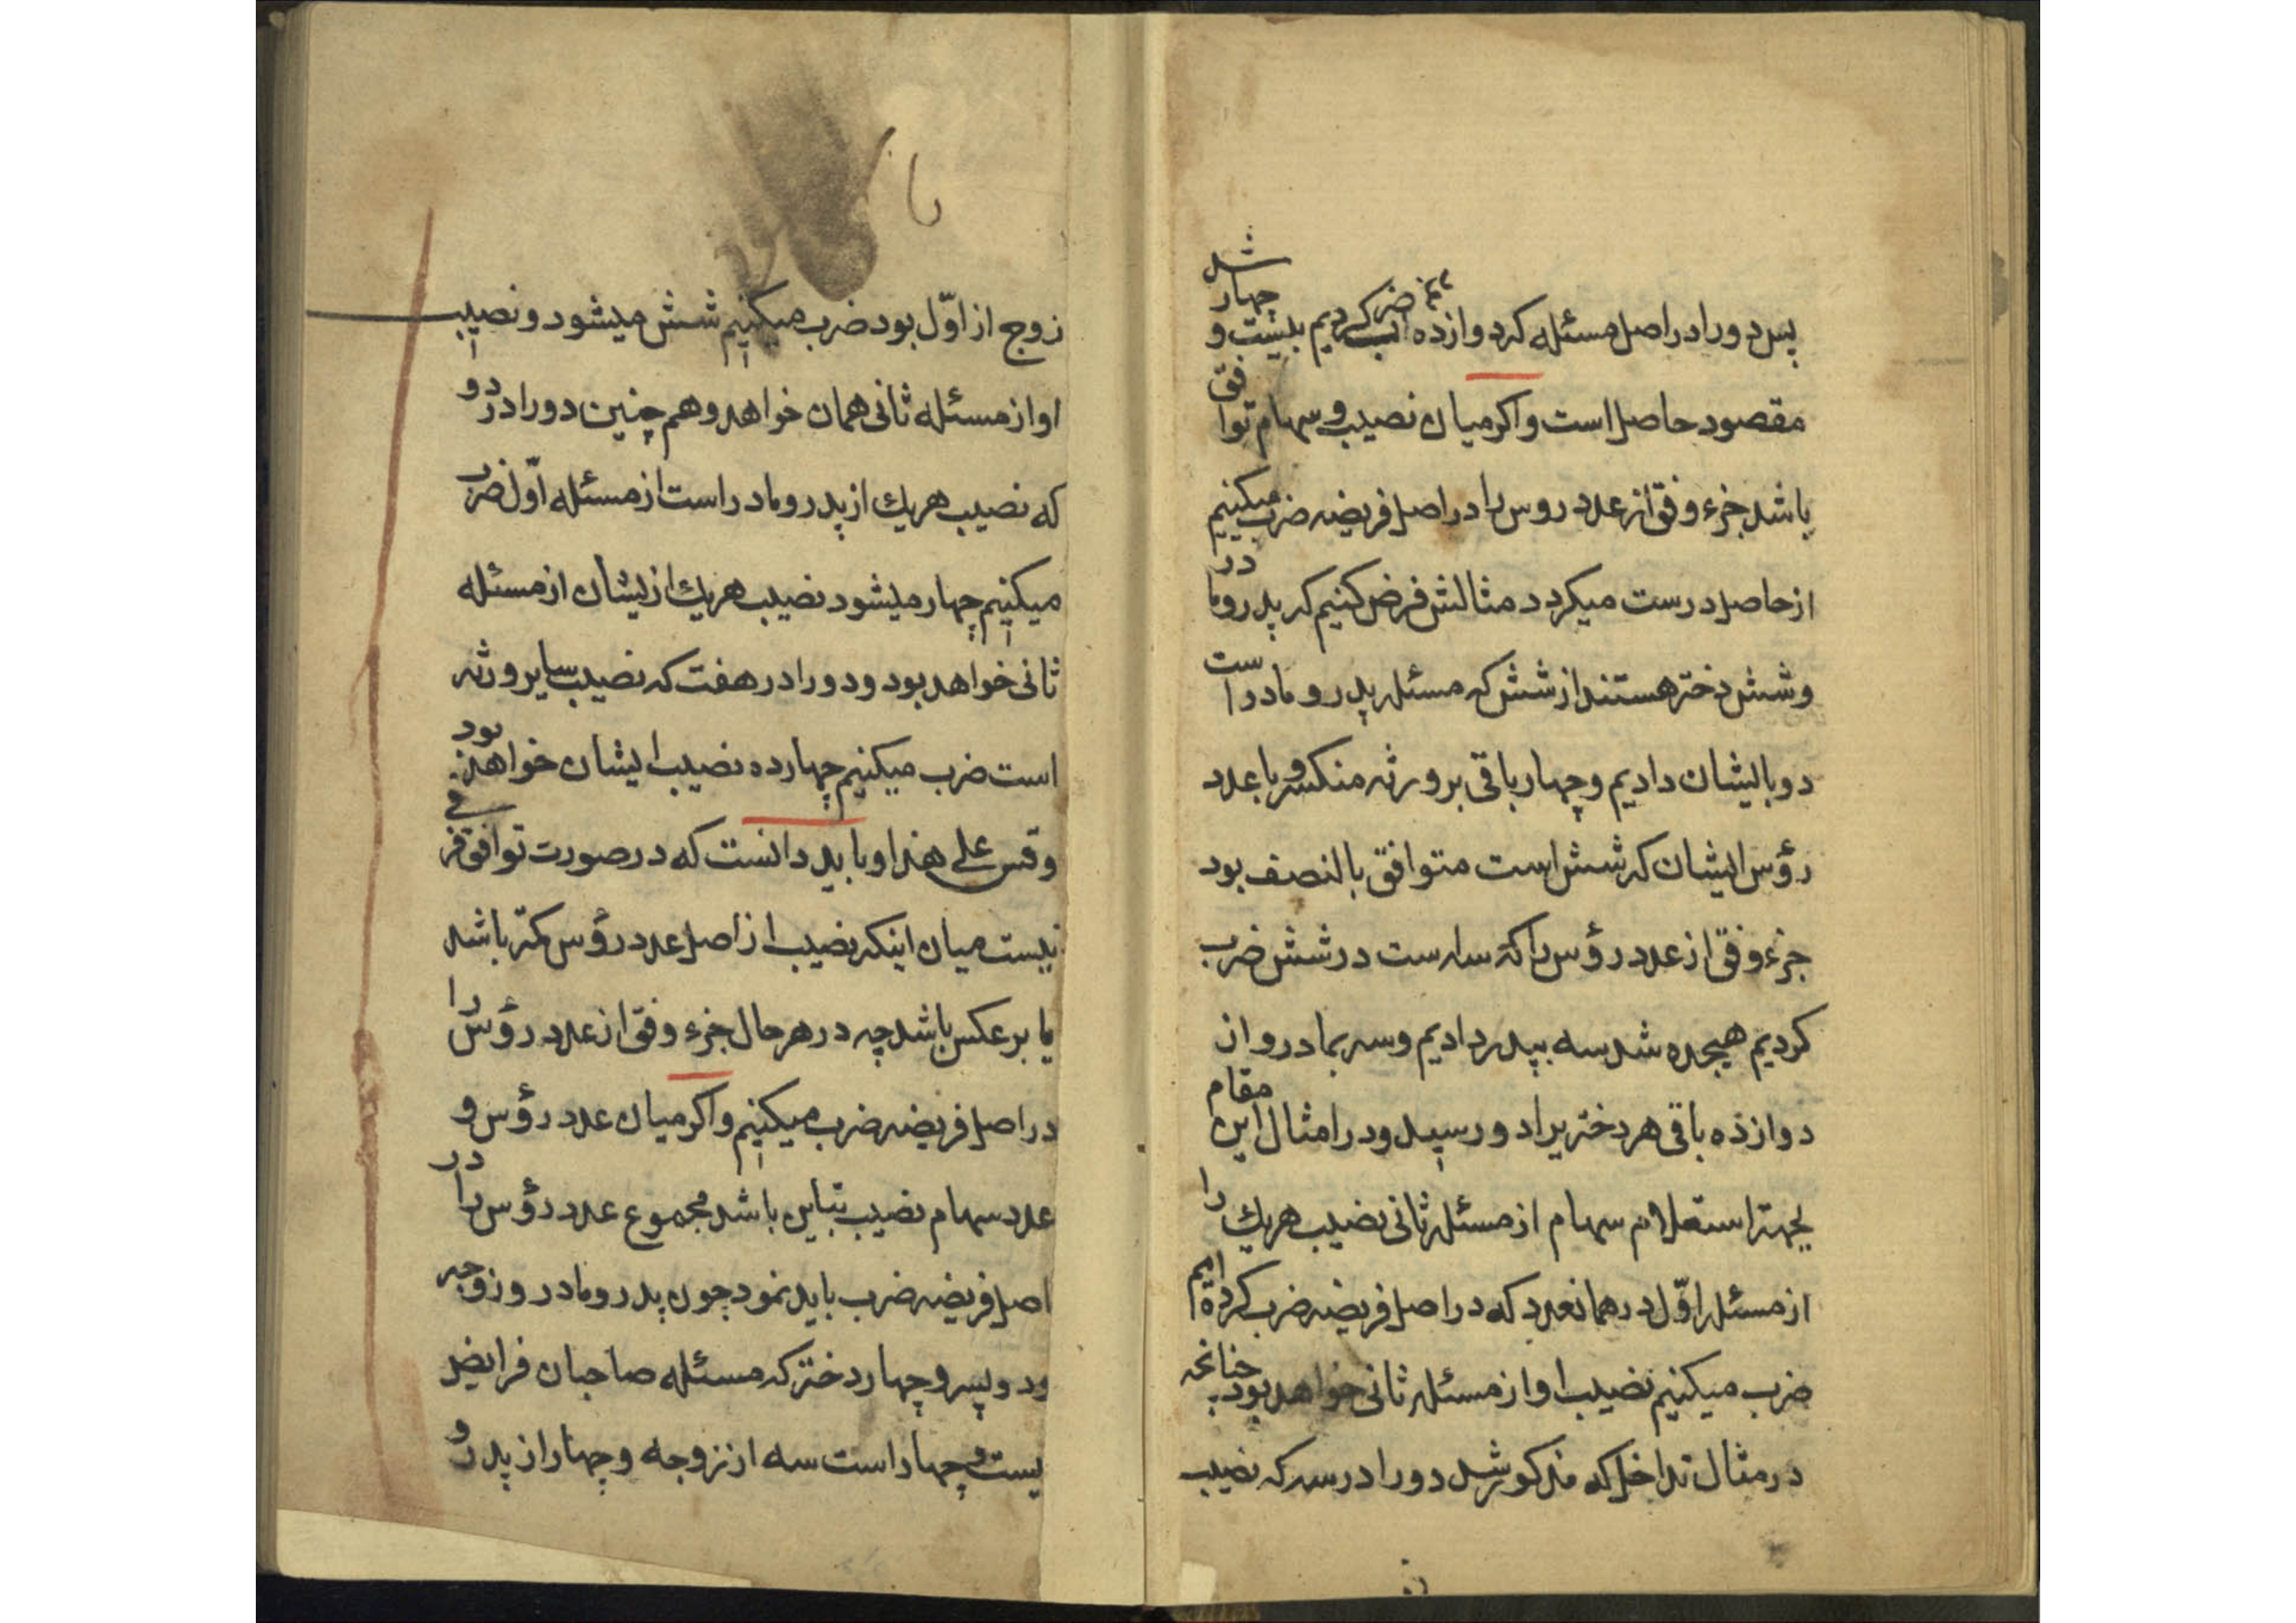 پس دو را در اصل مسئله که دوازده است ضرب کردیم بیست و چهار شد
مقصود حاصل است و اکر میان نصیب و سهام توافق
باشد جزء وفق از عدد روس را در اصل فریضه ضرب میکنیم
از حاصل درست میکردد مثالش فرض کنیم که پدر و مادر
و شش دختر هستند از شش که مسئله پدر و مادر است
دو بایشان دادیم و چهار باقی بر ورثه منکسر و با عدد
رؤس ایشان که شش است متوافق بالنصف بود
جزء وفق از عدد رؤس را که سه است در شش ضرب
کردیم هیجده شد سه بپدر دادیم و سه بمادر و از
دوازده باقی هر دختریرا دو رسید و در امثال این مقام
بجهة استعلام سهام از مسئله ثانی نصیب هریك را
از مسئله اوّل در همانعدد که در اصل فریضه ضرب کرده ایم
ضرب میکنیم نصیب او از مسئله ثانی خواهد بود چنانچه
در مثال تداخل که مذکور شد دو را در سه که نصیب
زوج از اوّل بود ضرب میکنیم شش میشود و نصیب
او از مسئله ثانی همان خواهد و هم چنین دو را در دو
که نصیب هریك از پدر و مادر است از مسئله اوّل ضرب
میکنیم چهار میشود نصیب هریك از ایشان از مسئله
ثانی خواهد بود و دو را در هفت که نصیب سایر ورثه
است ضرب میکنیم چهارده نصیب ایشان خواهد بود
وقس علی هذا و باید دانست که در صورت توافق فرقی
نیست میان اینکه نصیب از اصل عدد رؤس کمتر باشد
یا بر عکس باشد چه در هر حال جزء وفق از عدد رؤس را
در اصل فریضه ضرب میکنیم و اکر میان عدد رؤس و
عدد سهام نصیب تباین باشد مجموع عدد رؤس را در
اصل فریضه ضرب باید نمود چون پدر و مادر و زوجه
و دو پسر و چهار دختر که مسئله صاحبان فرایض
بیست و چهار است سه از زوجه و چهار از پدر و